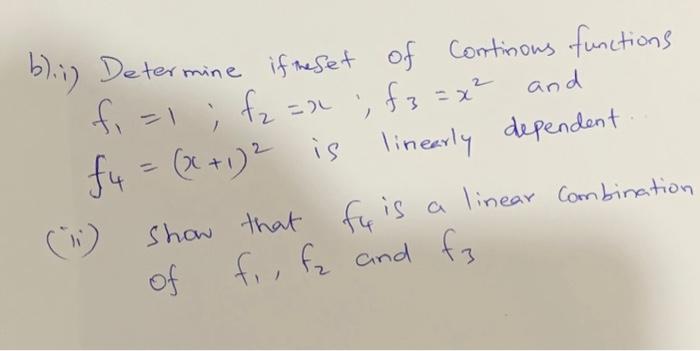 b).i) Determine if the set of Continous functions
f₁ = 1 ; f₂ = x ; f₃ = x² and
f₄ = (x+1)² is linearly dependent.
(ii) show that f₄ is a linear Combination
of f₁, f₂ and f₃